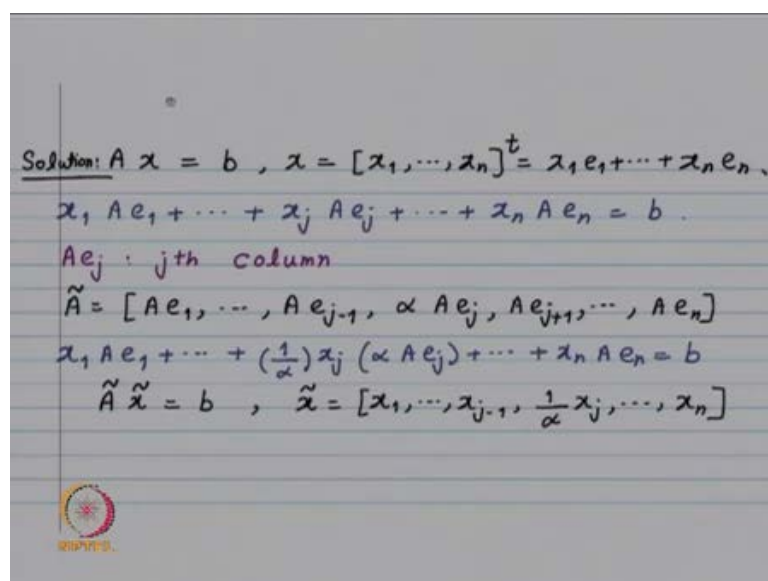 Solution: A x = b , x = [x₁, ⋯, xₙ]ᵗ = x₁ e₁ + ⋯ + xₙ eₙ .
x₁ A e₁ + ⋯ + xⱼ A eⱼ + ⋯ + xₙ A eₙ = b .
A eⱼ : jth column
Ã = [ A e₁, ⋯, A eⱼ₋₁, α A eⱼ, A eⱼ₊₁, ⋯, A eₙ ]
x₁ A e₁ + ⋯ + (1/α) xⱼ (α A eⱼ) + ⋯ + xₙ A eₙ = b
Ã x̃ = b , x̃ = [ x₁, ⋯, xⱼ₋₁, 1/α xⱼ, ⋯, xₙ ]
NPTEL